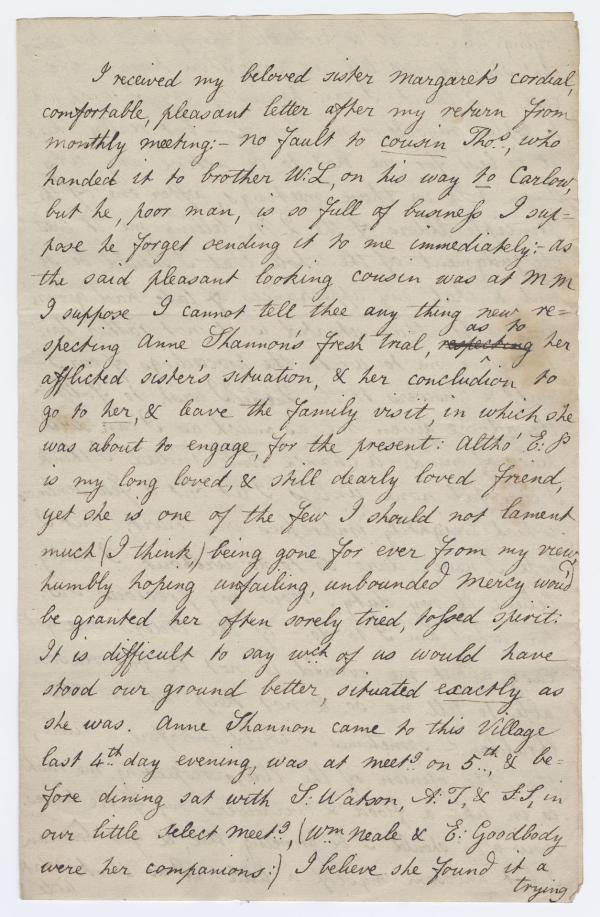 I received my beloved sister Margaret's cordial,
comfortable, pleasant letter after my return from
monthly meeting:- no fault to cousin Thos., who
handed it to brother W:L, on his way to Carlow,
but he, poor man, is so full of business I sup=
pose he forget sending it to me immediately:- as
the said pleasant looking cousin was at MM
I suppose I cannot tell thee any thing new re=
specting Anne Shannon's fresh trial, respecting as to her
afflicted sister's situation, & her concludion to
go to her, & leave the family visit, in which she
was about to engage, for the present: Altho' E:P
is my long loved, & still dearly loved friend,
yet she is one of the few I should not lament
much (I think,) being gone for ever from my view,
humbly hoping unfailing, unbounded Mercy wou'd
be granted her often sorely tried, tossed spirit:
It is difficult to say wch of us would have
stood our ground better, situated exactly as
she was. Anne Shannon came to this Village
last 4th day evening, was at meetg on 5th, & be=
fore dining sat with S: Watson, A:T, & F:S, in
our little select meetg, (Wm Neale & E: Goodbody
were her companions:) I believe she found it a
trying